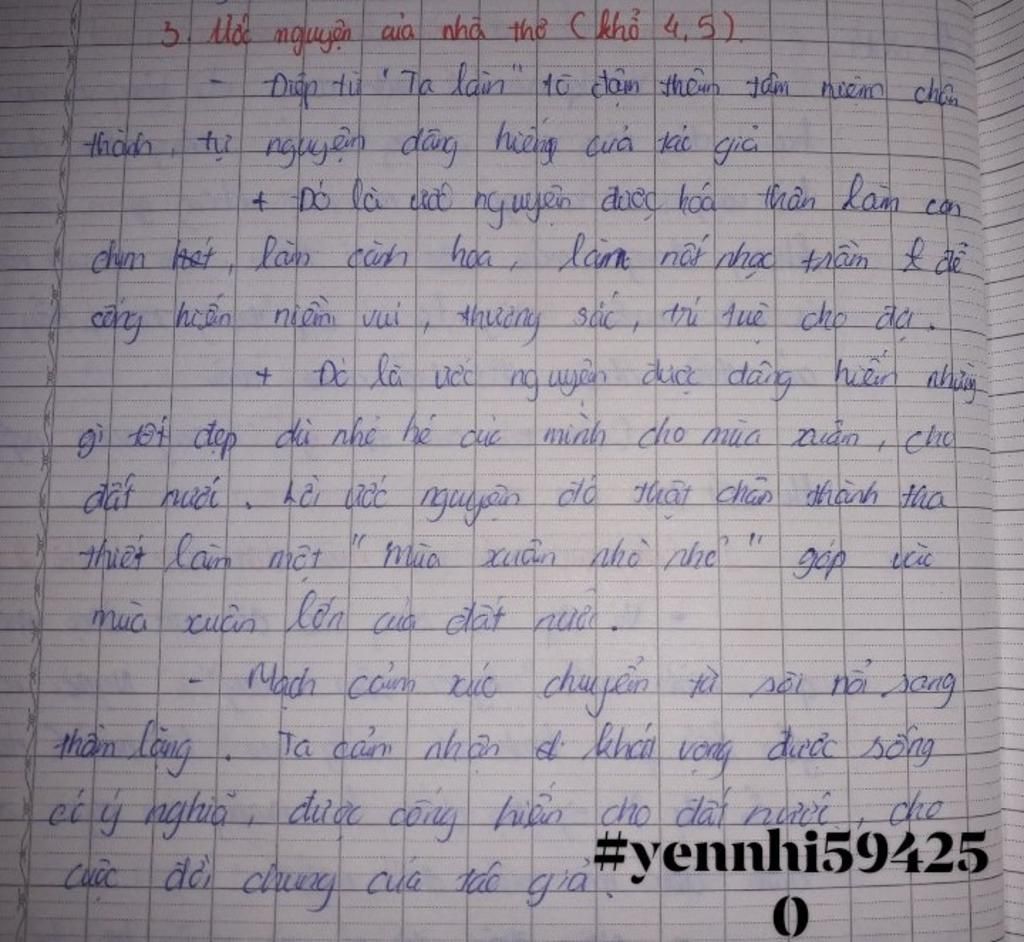 3. Ước nguyện của nhà thơ (khổ 4, 5).
- Điệp từ "Ta làm" tô đậm thêm tâm niệm chân
thành, tự nguyện dâng hiến của tác giả
+ Đó là ước nguyện được hoá thân làm con
chim hót, làm cành hoa, làm nốt nhạc trầm để
cống hiến niềm vui, thương sắc, trí tuệ cho đạ.
+ Đó là ước nguyện được dâng hiến những
gì tốt đẹp dù nhỏ bé của mình cho mùa xuân, cho
đất nước. Lời ước nguyện đó thật chân thành tha
thiết làm một "mùa xuân nhỏ nhỏ" góp vào
mùa xuân lớn của đất nước.
- Mạch cảm xúc chuyển từ sôi nổi sang
thầm lặng. Ta cảm nhận khát vọng được sống
có ý nghĩa, được cống hiến cho đất nước, cho
cuộc đời chung của tác giả.
#yennhi59425
0